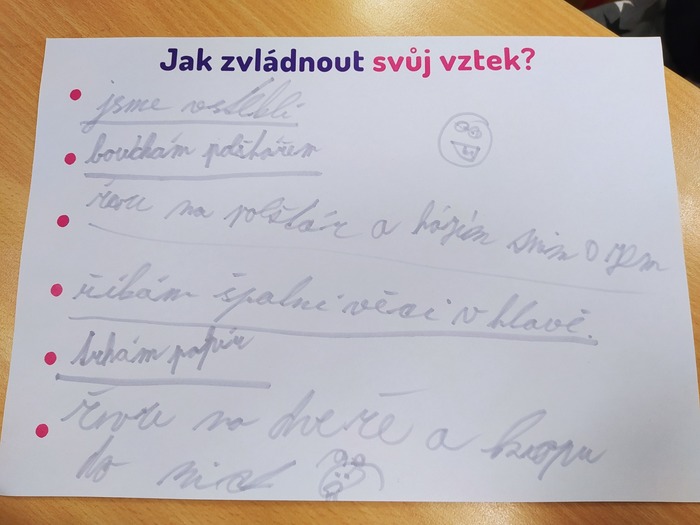 Jak zvládnout svůj vztek?
jsme vsteklí
bouchám polštářem
řvu na polštář a házím s ním o zem
říkám špatní věci v hlavě.
trhám papír
řvu na dveře a kopu
do nich